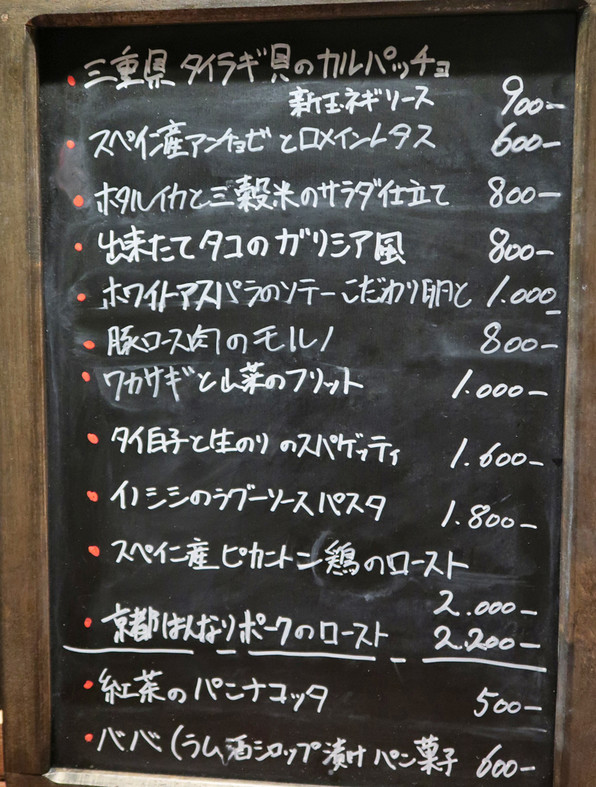 • 三重県 タイラギ貝のカルパッチョ
新玉ネギソース 900−
• スペイン産アンチョビとロメインレタス 600−
• ホタルイカと三穀米のサラダ仕立て 800−
• 出来たてタコのガリシア風 800−
• ホワイトアスパラのソテーこだわり卵と 1.000−
• 豚ロース肉のモルノ 800−
• ワカサギと山菜のフリット 1.000−
• タイ白子と生のりのスパゲッティ 1.600−
• イノシシのラグーソースパスタ 1.800−
• スペイン産ピカントン鶏のロースト
2.000−
• 京都はんなりポークのロースト 2.200−
• 紅茶のパンナコッタ 500−
• ババ (ラム酒シロップ漬けパン菓子 600−